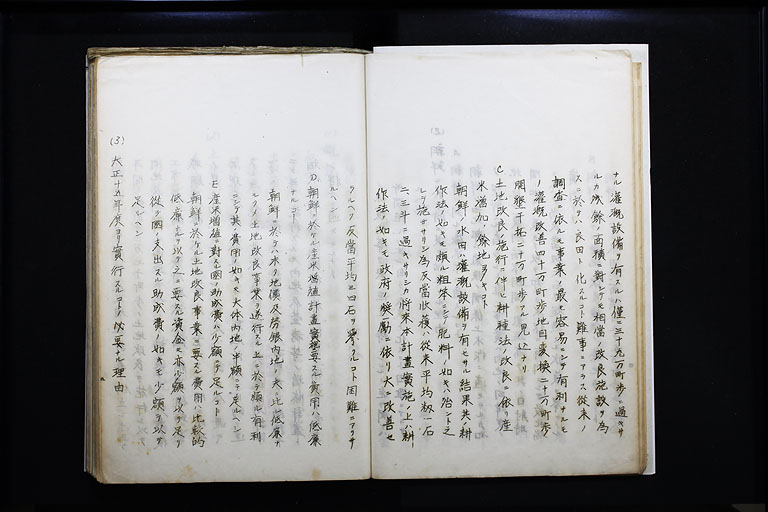 ナル灌漑設備ヲ有スルハ僅ニ三十九万町歩ニ過キサ
ルカ残餘ノ面積ニ対シテモ相當ノ改良施設ヲ為
スニ於テハ良田ト化スルコト難事ニアラス従来ノ
調査ニ依ルモ事業ノ最モ容易ニシテ有利ナルモ
ノ灌漑改善四十万町歩地目変換二十万町歩
開墾干拓二十万町歩ノ見込ナリ
C 土地改良ノ施行ニ伴ヒ耕種法改良ニ依リ産
米増加ノ餘地多キコト
朝鮮ノ水田ハ灌漑設備ヲ有セサル結果其ノ耕
作法ノ如キモ頗ル粗笨ニシテ肥料ノ如キ殆ント之
レヲ施ササリシ為反當収穫ハ従来平均籾一石
二、三斗ニ過キサリシカ将来本計畫實施ノ上ハ耕
作法ノ如キモ政府ノ奨励ニ依リ大ニ改善セ
ラルヘク反當平均二四石ヲ
コト困難ニアラサ
ルヘシ
D 朝鮮ニ於ケル産米増殖計畫實施ニ要スル費用ハ低廉
ナルコト
朝鮮ニ於テハ水
地價及労銀内地ノ夫ニ比シ低廉ナ
ルタメ土地改良事業ヲ遂行スル上ニ於テ頗ル有利
ニシテ其ノ費用ノ如キモ大体内地ノ半額ニテ足ルヘシ
E 産米増殖ニ対スル國ノ助成費ハ少額ニテ足ルコト
朝鮮ニ於ケル土地改良事業ニ要スル費用ハ比較的
低廉ナルヲ以テ之ニ要スル資金モ亦少額ヲ以テ足リ
従テ國ノ支出スル助成費ノ如キモ少額ヲ以テ
足ルヘシ
(3) 大正十五年度ヨリ實行スルコトノ必要ナル理由